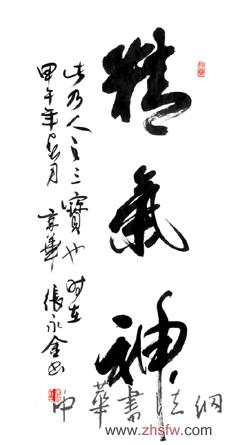 精氣神
此乃人之三寶也 时在
甲午年冬月 京華 張永金書
中華書法網
www.zhsfw.com